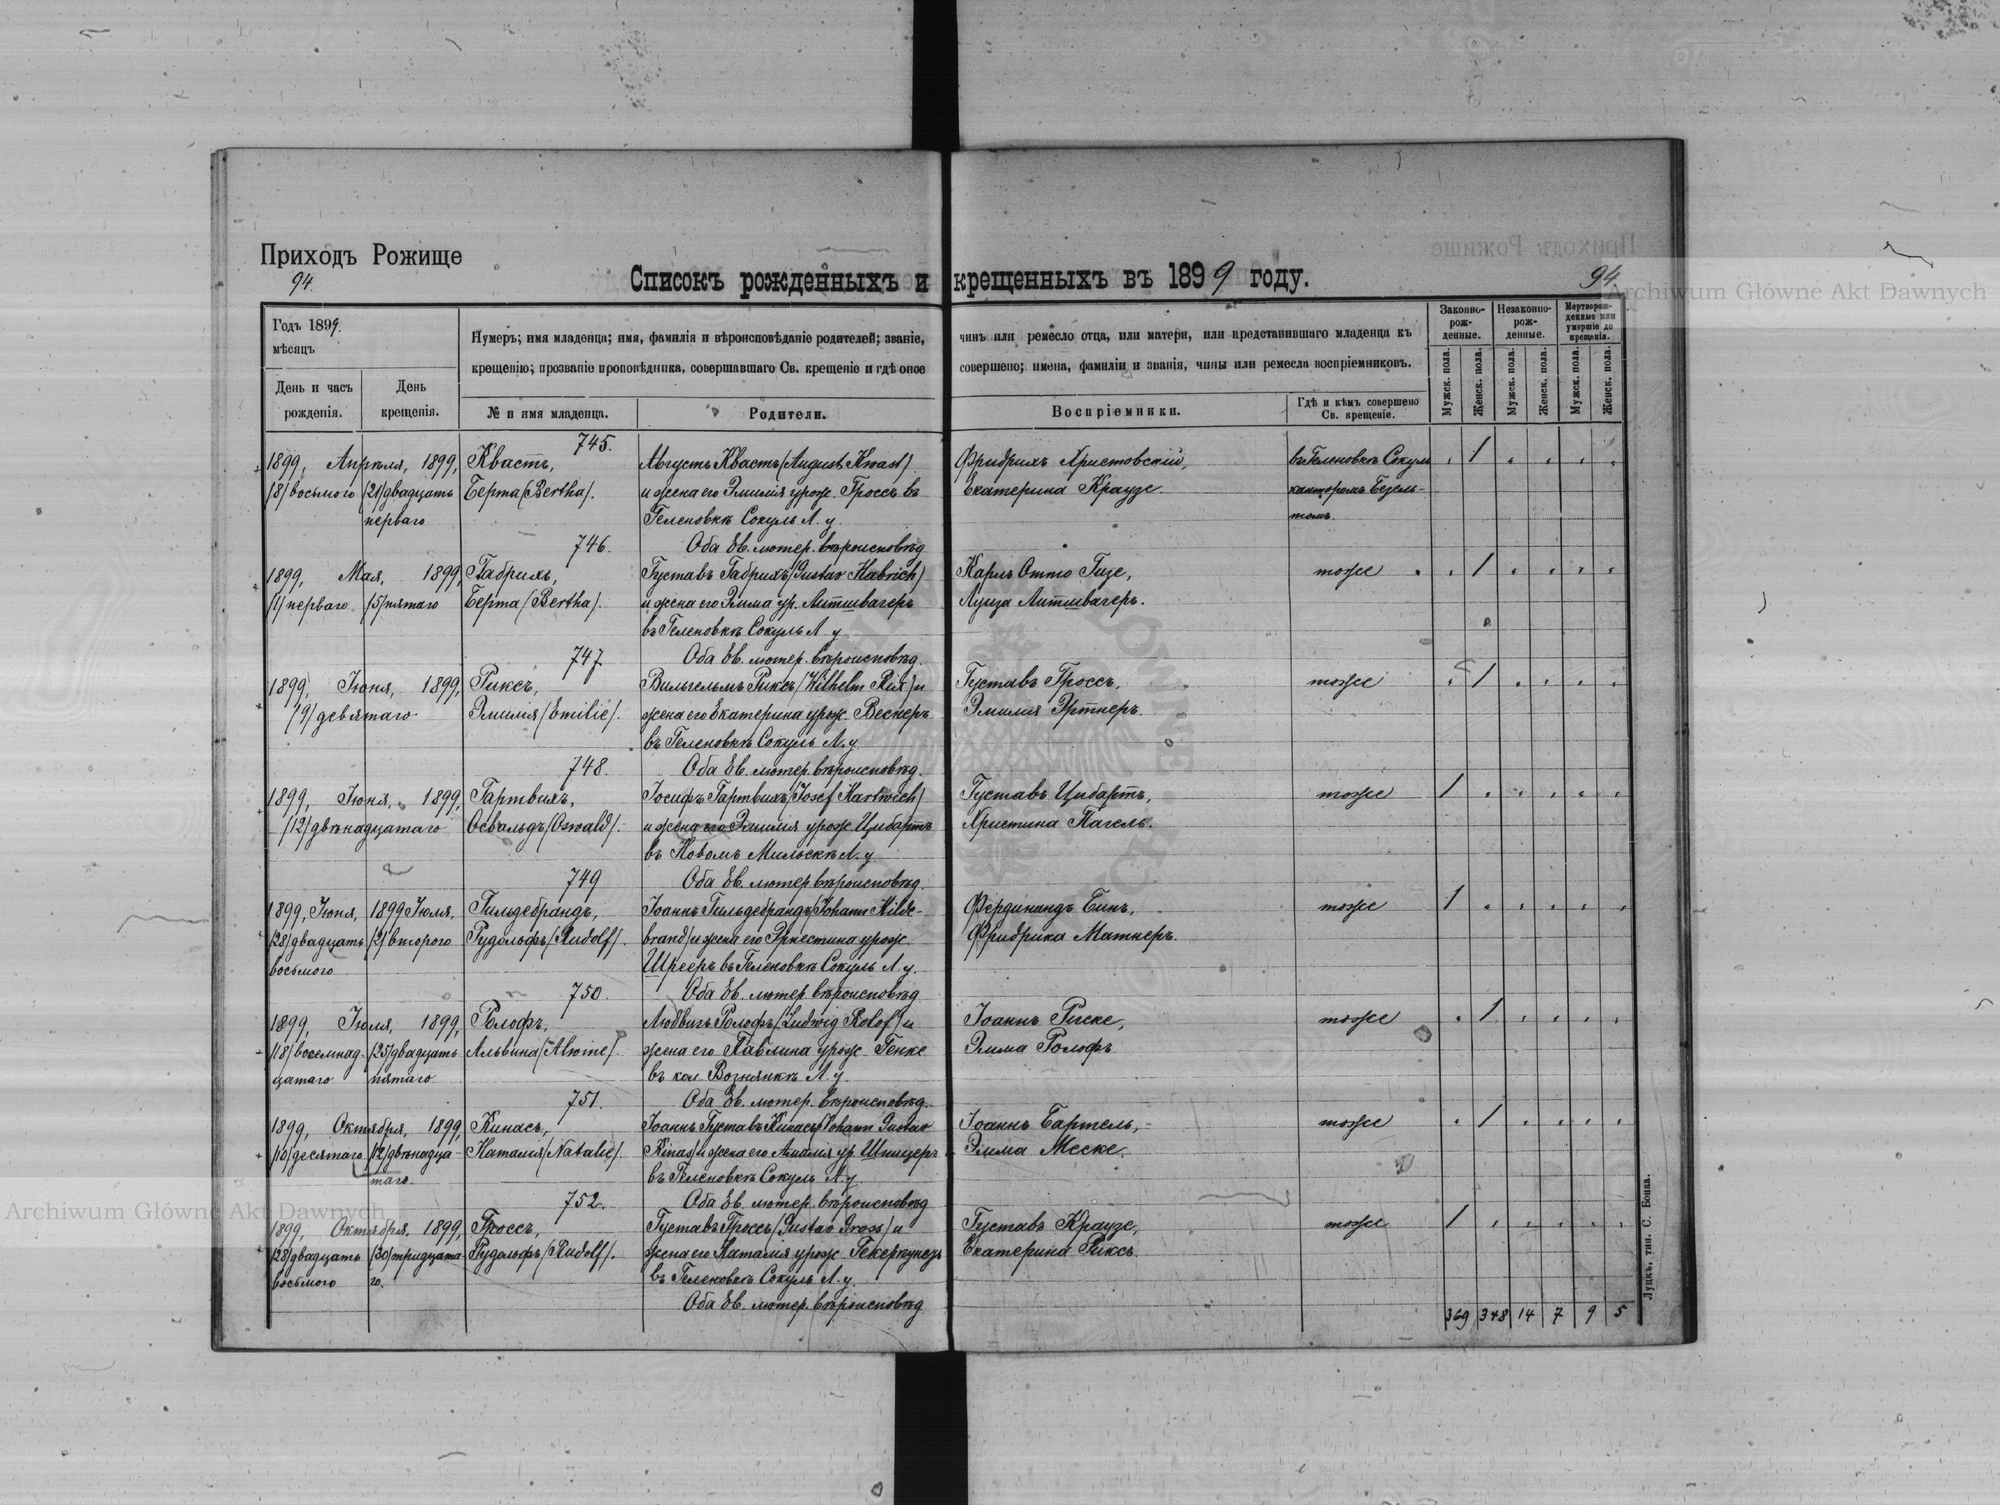 Приходъ Рожище
94.
94.
Списокъ рожденныхъ и крещенныхъ въ 1899 году.
Годъ 1899.
мѣсяцъ
День и часъ рожденія.
День крещенія.
Нумеръ; имя младенца; имя, фамилія и вѣроисповѣданіе родителей; званіе,
чинъ или ремесло отца, или матери, или представившаго младенца къ
крещенію; прозваніе проповѣдника, совершавшаго Св. крещеніе и гдѣ оное
совершено; имена, фамиліи и званія, чины или ремесла воспріемниковъ.
№ и имя младенца.
Родители.
Воспріемники.
Гдѣ и кѣмъ совершено Св. крещеніе.
Законно-рож-денные.
Незаконно-рож-денные.
Мертворож-денные или умершіе до крещенія.
Мужск. пола.
Женск. пола.
Мужск. пола.
Женск. пола.
Мужск. пола.
Женск. пола.
745.
1899, Апрѣля, 1899, Квастъ, Августъ Квастъ (August Kwast) Фридрихъ Христовскій, въ Геленовкѣ Сокуль . 1 . . . .
(8) восьмого (21) двадцать Берта (Bertha). и жена его Эмилія урож. Гроссъ въ Екатерина Краузе. канторомъ Безель-
перваго Геленовкѣ Сокуль Л. у. томъ.
746. Оба Ев. лютер. вѣроисповѣд.
1899, Мая, 1899, Габрихъ, Густавъ Габрихъ (Gustav Habrich) Карлъ Отто Гизе, тоже . 1 . . . .
(1) перваго (5) пятаго Берта (Bertha). и жена его Эмма ур. Литшвагеръ Луиза Литшвагеръ.
въ Геленовкѣ Сокуль Л. у.
747. Оба Ев. лютер. вѣроисповѣд.
1899, Іюня, 1899, Риксъ, Вильгельмъ Риксъ (Wilhelm Rix) и Густавъ Гроссъ, тоже . 1 . . . .
(9) девятаго Эмилія (Emilie). жена его Екатерина урож. Веснеръ Эмилія Эртнеръ.
въ Геленовкѣ Сокуль Л. у.
748. Оба Ев. лютер. вѣроисповѣд.
1899, Іюня, 1899, Гартвихъ, Іосифъ Гартвихъ (Josef Hartwich) Густавъ Цибартъ, тоже 1 . . . . .
(12) двѣнадцатаго Освальдъ (Oswald). и жена его Эмилія урож. Цибартъ Христина Пагель.
въ Новомъ Мильскѣ Л. у.
749 Оба Ев. лютер. вѣроисповѣд.
1899, Іюня, 1899 Іюля, Гильдебрандъ, Іоаннъ Гильдебрандъ (Johann Hilde- Фердинандъ Бинъ, тоже 1 . . . . .
(28) двадцать (2) второго Рудольфъ (Rudolf). brand) и жена его Эрнестина урож. Фридрика Матнеръ.
восьмого Шрееръ въ Геленовкѣ Сокуль Л. у.
750. Оба Ев. лютер. вѣроисповѣд.
1899, Іюля, 1899, Ролофъ, Людвигъ Ролофъ (Ludwig Rolof) и Іоаннъ Риске, тоже . 1 . . . .
(18) восемнад- (25) двадцать Альвина (Alwine). жена его Павлина урож. Генке Эмма Ролофъ.
цатаго пятаго въ кол. Вознянкѣ Л. у.
751. Оба Ев. лютер. вѣроисповѣд.
1899, Октября, 1899, Кинасъ, Іоаннъ Густавъ Кинасъ (Johann Gustav Іоаннъ Бартель, тоже . 1 . . . .
(10) десятаго (12) двѣнадца- Наталія (Natalie). Kinas) и жена его Амалія ур. Шпицеръ Эмма Меске.
таго. въ Геленовкѣ Сокуль Л. у.
752. Оба Ев. лютер. вѣроисповѣд.
1899, Октября, 1899, Гроссъ, Густавъ Гроссъ (Gustav Gross) и Густавъ Краузе, тоже 1 . . . . .
(28) двадцать (30) тридцата- Рудольфъ (Rudolf). жена его Наталія урож. Гекеркунецъ Екатерина Риксъ.
восьмого го. въ Геленовкѣ Сокуль Л. у.
Оба Ев. лютер. вѣроисповѣд.
369 348 14 7 9 5
Луцкъ, тип. С. Бонка.
Archiwum Główne Akt Dawnych
Archiwum Główne Akt Dawnych